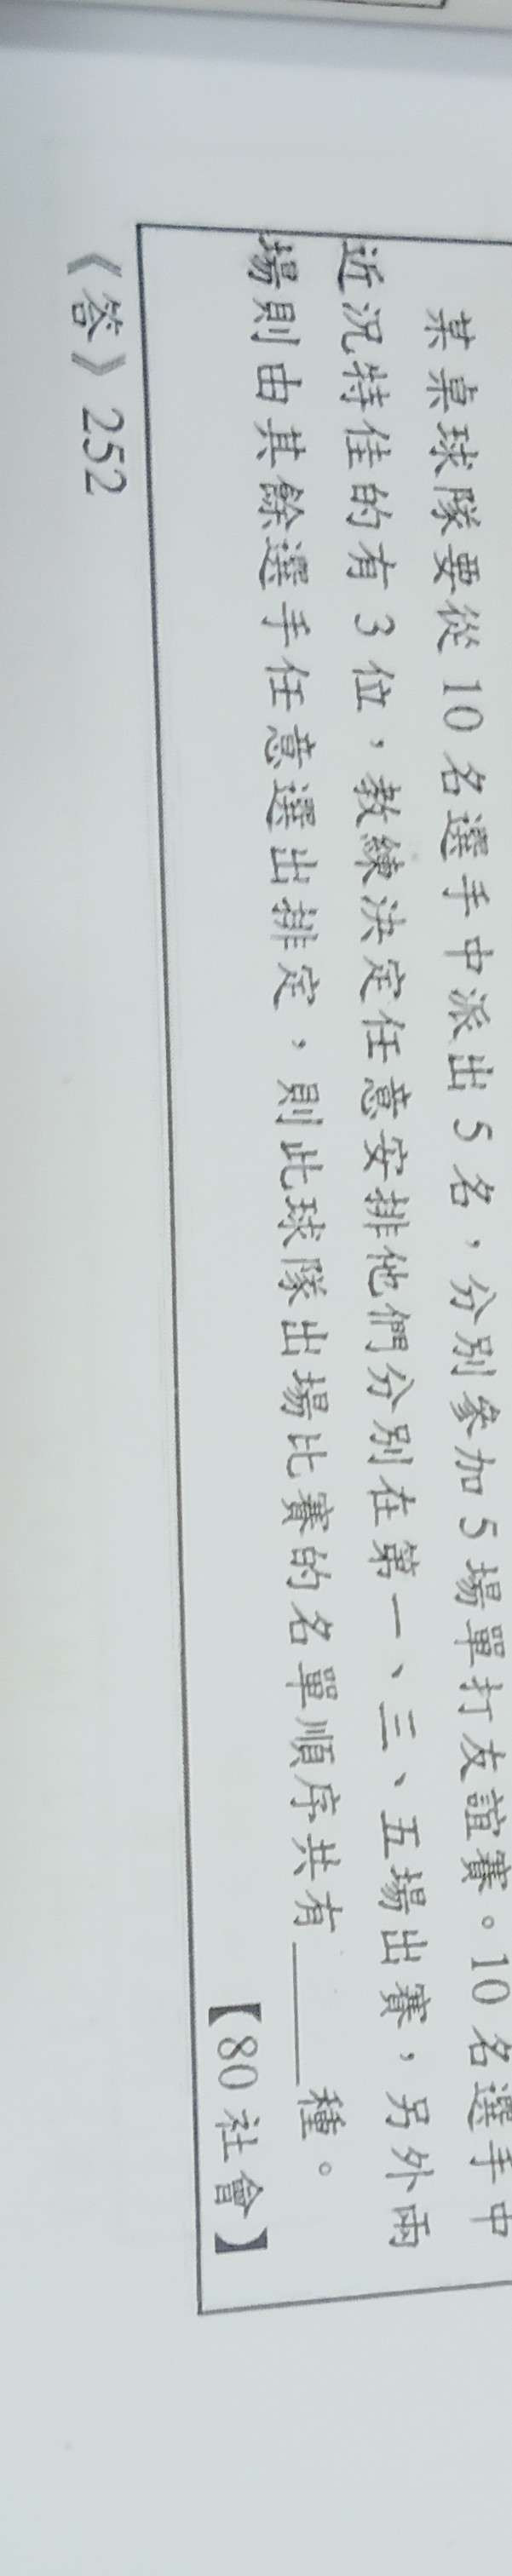 某桌球隊要從 10 名選手中派出 5 名，分別參加 5 場單打友誼賽。10 名選手中
近況特佳的有 3 位，教練決定任意安排他們分別在第一、三、五場出賽，另外兩
場則由其餘選手任意選出排定，則此球隊出場比賽的名單順序共有______種。
【80 社會】
《答》252